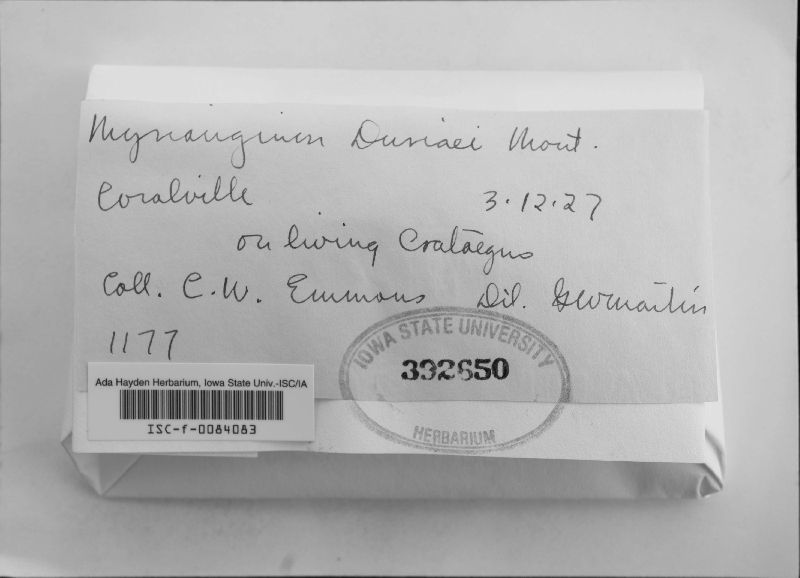 Myriangium Duriaei Mont.
Coralville 3.12.27
on living Crataegus
Coll. C.W. Emmons Dil. GWMartin
1177
IOWA STATE UNIVERSITY
392650
HERBARIUM
Ada Hayden Herbarium, Iowa State Univ.-ISC/IA
ISC-f-0084083